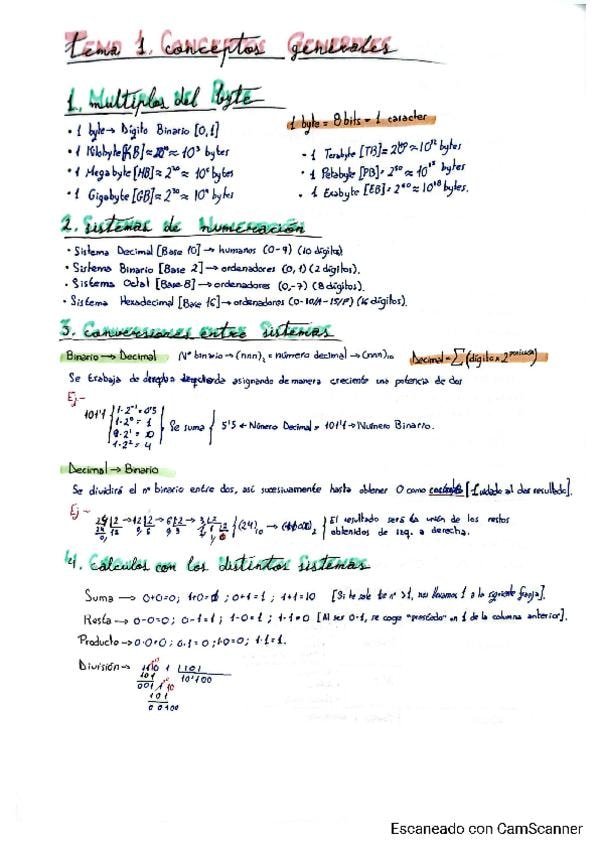 Tema 1. Conceptos Generales
1. Multiplos del Byte
1 byte = 8 bits = 1 caracter
• 1 byte → Dígito Binario [0,1]
• 1 Kilobyte [KB] ≈ 2¹⁰ ≈ 10³ bytes
• 1 Megabyte [MB] ≈ 2²⁰ ≈ 10⁶ bytes
• 1 Gigabyte [GB] ≈ 2³⁰ ≈ 10⁹ bytes
• 1 Terabyte [TB] = 2⁴⁰ ≈ 10¹² bytes
• 1 Petabyte [PB] = 2⁵⁰ ≈ 10¹⁵ bytes
• 1 Exabyte [EB] = 2⁶⁰ ≈ 10¹⁸ bytes.
2. Sistemas de Numeración
• Sistema Decimal [Base 10] → humanos (0-9) (10 dígitos)
• Sistema Binario [Base 2] → ordenadores (0,1) (2 dígitos).
• Sistema Octal [Base 8] → ordenadores (0,-7) (8 dígitos).
• Sistema Hexadecimal [Base 16] → ordenadores (0-10/A-15/F) (16 dígitos).
3. Conversiones entre Sistemas
Binario → Decimal Nº binario → (nnn)₂ = número decimal → (nnn)₁₀ Decimal = ∑ (dígito × 2^posición)
Se trabaja de derecha izquierda asignando de manera creciente una potencia de dos
Ej –
101'1 { 1·2⁻¹ = 0'5
1·2⁰ = 1
0·2¹ = 0
1·2² = 4
Se suma { 5'5 ← Número Decimal = 101'1 → Número Binario.
Decimal → Binario
Se dividirá el nº binario entre dos, así sucesivamente hasta obtener 0 como cociente [Cuidado al dar resultado].
Ej –
24 |2 → 12 |2 → 6 |2 → 3 |2 (24)₁₀ → ₂ El resultado será la unión de los restos
obtenidos de izq. a derecha.
4. Cálculos con los distintos Sistemas
Suma → 0+0=0; 1+0=1; 0+1=1; 1+1=10
Resta → 0-0=0; 0-1=1; 1-0=1; 1-1=0 [Al ser 0-1, se coge "prestado" un 1 de la columna anterior].
Producto → 0·0=0; 0·1=0; 1·0=0; 1·1=1.
División → 1101 |101
101 10'100
001 10
101
00100
Escaneado con CamScanner